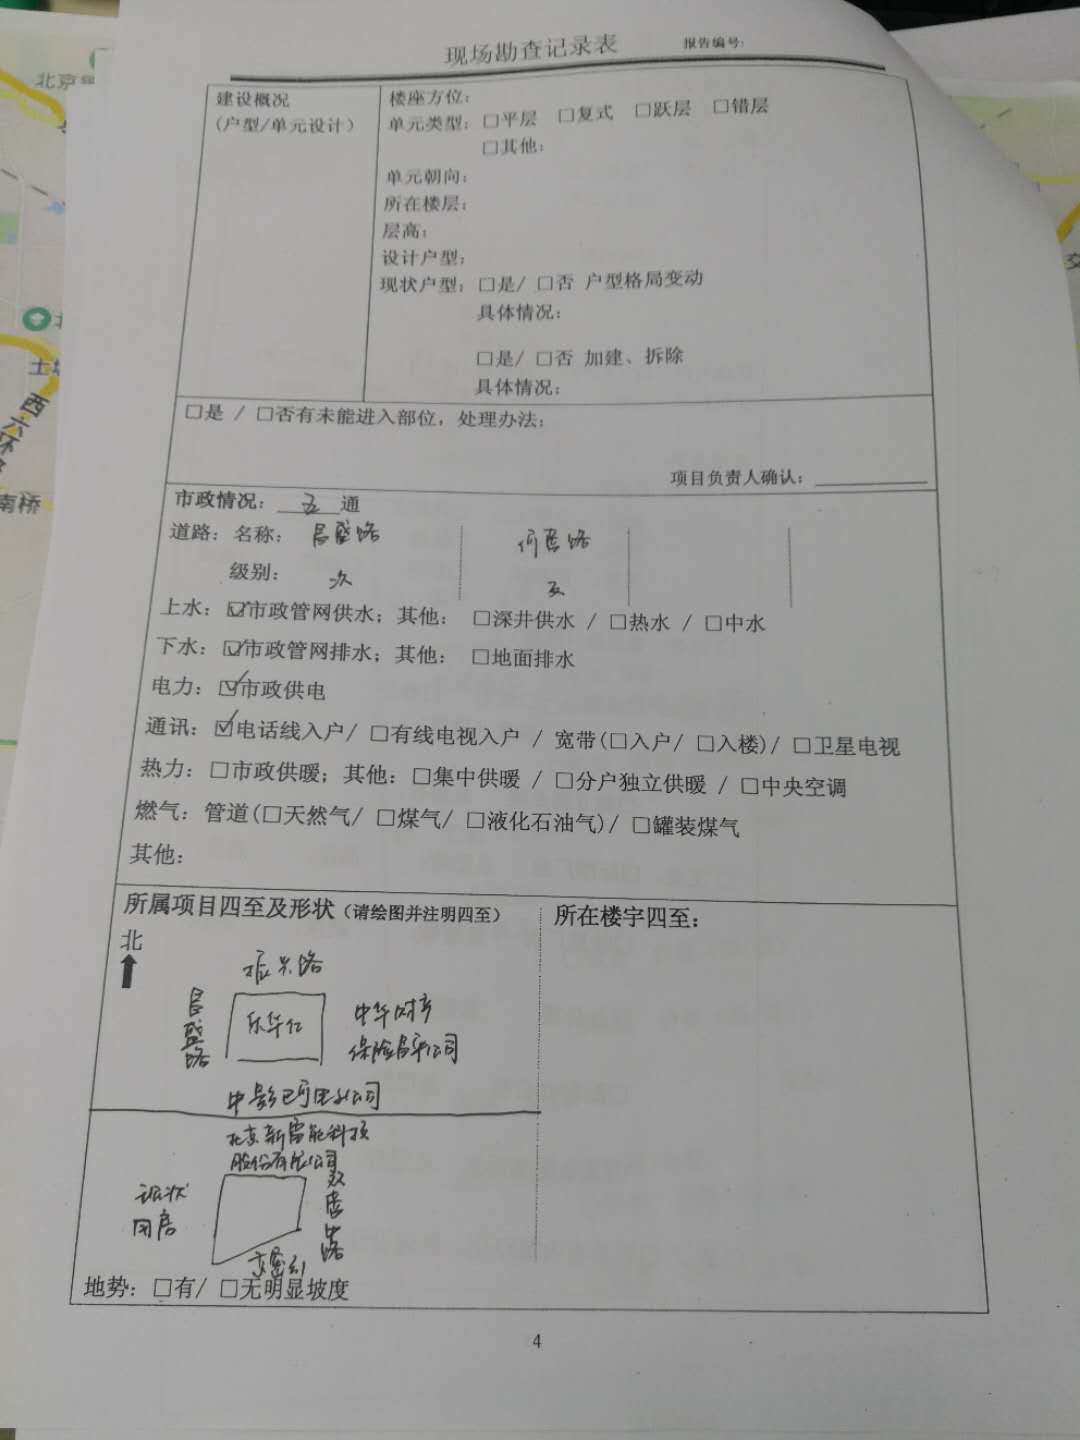 现场勘查记录表 报告编号:
建设概况
(户型/单元设计)
楼座方位:
单元类型: □平层 □复式 □跃层 □错层
□其他:
单元朝向:
所在楼层:
层高:
设计户型:
现状户型: □是/ □否 户型格局变动
具体情况:
□是/ □否 加建、拆除
具体情况:
□是 / □否有未能进入部位,处理办法:
项目负责人确认:
市政情况: 五 通
道路: 名称: 昌盛路
级别: 次 支
上水: ☑市政管网供水; 其他: □深井供水 / □热水 / □中水
下水: ☑市政管网排水; 其他: □地面排水
电力: ☑市政供电
通讯: ☑电话线入户/ □有线电视入户 / 宽带(□入户/ □入楼)/ □卫星电视
热力: □市政供暖; 其他: □集中供暖 / □分户独立供暖 / □中央空调
燃气: 管道(□天然气/ □煤气/ □液化石油气)/ □罐装煤气
其他:
所属项目四至及形状(请绘图并注明四至)
所在楼宇四至:
北
振兴路
昌盛路
乐华仁
中华财产
保险昌平公司
中影 公司
北京新雷能科技
股份有限公司
现状
闲房
双 路
地势: □有/ □无明显坡度
4
北京
土城
西六环路
南桥